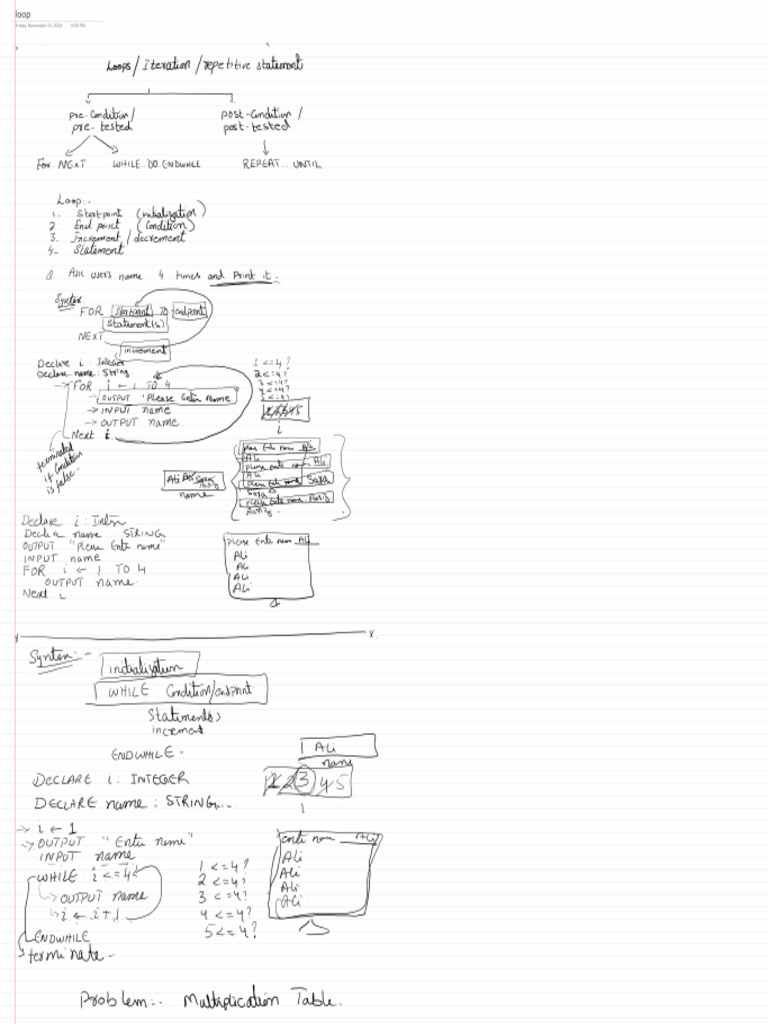 loop
Friday, November 24, 2023 4:00 PM
Loops / Iteration / repetitive statement
pre-Condition / post-Condition /
pre-tested post-tested
For..NEXT WHILE..DO..ENDWHILE REPEAT...UNTIL
Loop:-
1- Start point (initialization)
2 End point (Condition)
3. Increment / decrement
4- Statement
Q. Ask users name 4 times and Print it.
Syntax
FOR Startpoint TO endpoint
Statement(s)
NEXT
increment
Declare i : Integer
Declare name : String
FOR i ← 1 TO 4
OUTPUT "Please Enter Name"
INPUT name
OUTPUT name
Next i
terminated
if Condition
is false.
1 <=4?
2 <=4?
3 <=4?
4 <=4?
5 <=4?
1 2 3 4 5
i
Ali
name
please Enter name Ali
Ali
please enter name Ali
Ali
please Enter name Sara
Sara
please Enter name
Declare i : Intr
Declare name STRING
OUTPUT "Please Enter name"
INPUT name
FOR i ← 1 TO 4
OUTPUT name
Next i
please Enter name Ali
Ali
Ali
Ali
Ali
x x
Syntax:-
initialization
WHILE Condition/endpoint
Statements
increment
ENDWHILE -
Ali
name
1 2 3 4 5
i
DECLARE i : INTEGER
DECLARE name : STRING...
i ← 1
OUTPUT "Enter name"
INPUT name
WHILE i <=4
OUTPUT name
i ← i+1
ENDWHILE
terminate-
1 <=4?
2 <=4?
3 <=4?
4 <=4?
5 <=4?
enter name Ali
Ali
Ali
Ali
Ali
Problem:- Multiplication Table.